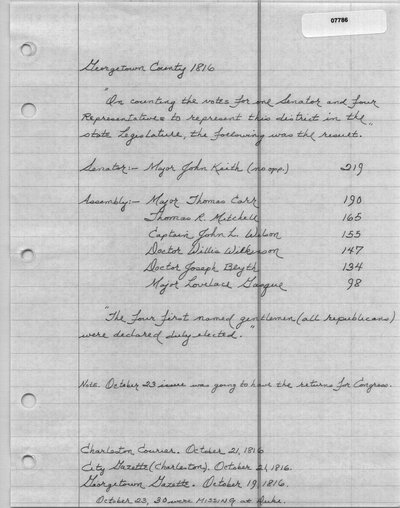 07786
Georgetown County 1816
"On counting the votes for one Senator and four
Representatives to represent this district in the
state Legislature, the following was the result."
Senator:- Major John Keith (no opp.) 219
Assembly:- Major Thomas Carr 190
Thomas R. Mitchell 165
Captain John L. Wilson 155
Doctor Willis Wilkinson 147
Doctor Joseph Blyth 134
Major Lovelace Gasque 98
"The four first named gentlemen (all republicans)
were declared duly elected."
Note. October 23 issue was going to have the returns for Congress.
Charleston Courier. October 21, 1816
City Gazette (Charleston). October 21, 1816.
Georgetown Gazette. October 19, 1816.
October 23, 30 were MISSING at Duke.